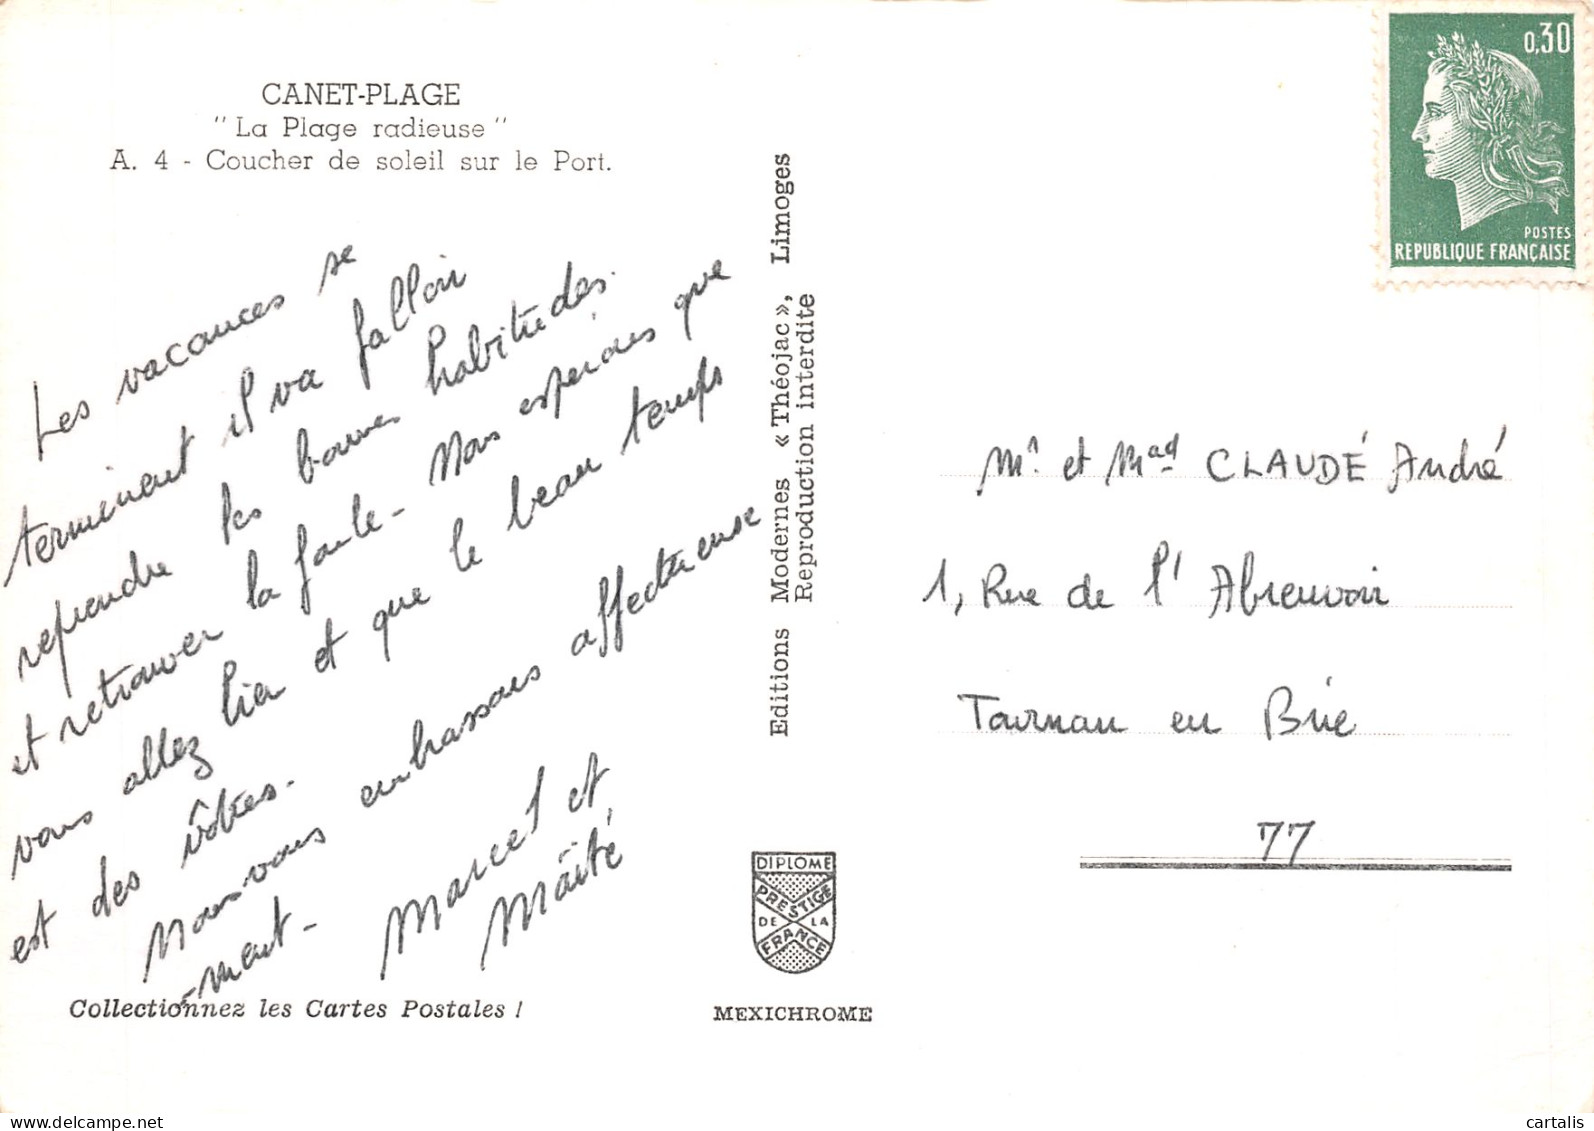 CANET-PLAGE
"La Plage radieuse"
A. 4 - Coucher de soleil sur le Port.
Les vacances se
terminent il va falloir
reprendre les bonnes habitudes.
et retrouver la foule - Nous espérons que
vous allez bien et que le beau temps
est des vôtres.
Nous vous embrassons affectueuse
-ment -
Marcel et
Maïté
Collectionnez les Cartes Postales !
Editions Modernes « Théojac », Limoges
Reproduction interdite
DIPLOME
PRESTIGE
DE LA
FRANCE
MEXICHROME
0,30
POSTES
REPUBLIQUE FRANÇAISE
Mr et Mad CLAUDÉ André
1, Rue de l'Abreuvoir
Tournan en Brie
77
cartalis
www.delcampe.net